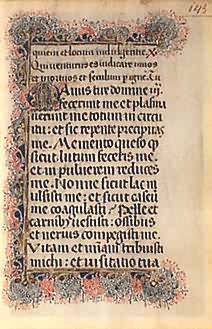 143
quietem et locum indulgentie.
Qui venturus es iudicare vivos
et mortuos et seculum per ignem.
Manus tue domine
fecerunt me et plasma
verunt me totum in circui
tu: et sic repente precipitas
me. Memento queso qd
sicut lutum feceris me.
et in pulverem reduces
me. Nonne sicut lac m
ulsisti me: et sicut caseū
me coagulasti. Pelle et
carnibus vestisti: ossibus
et nervis compegisti me.
Vitam et miām tribuisti
michi: et visitatio tua